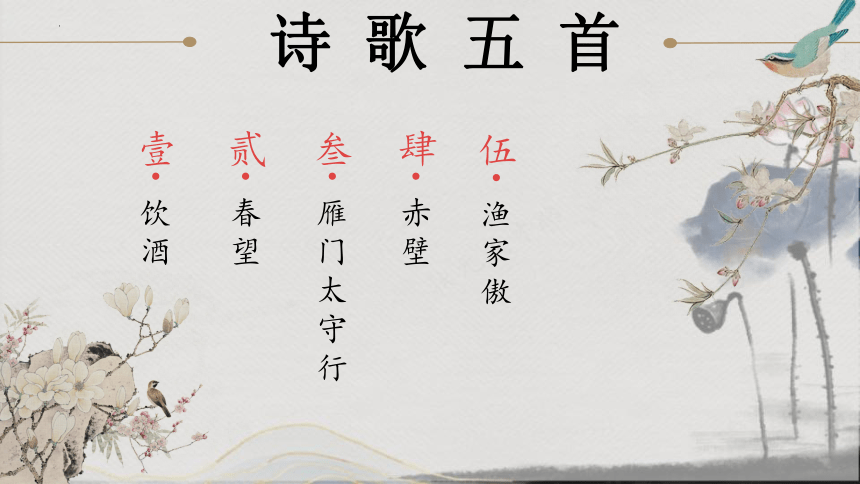 诗歌五首
壹·饮酒
贰·春望
叁·雁门太守行
肆·赤壁
伍·渔家傲